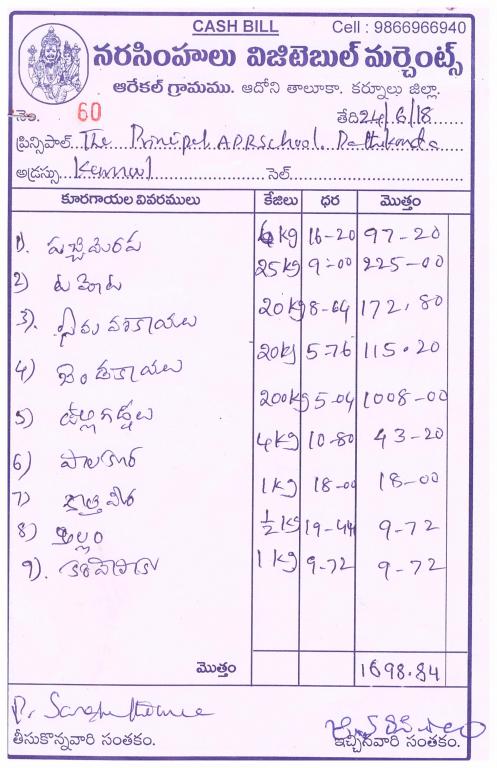 CASH BILL Cell : 9866966940
నరసింహులు విజిటెబుల్ మర్చెంట్స్
ఆరేకల్ గ్రామము. ఆదోని తాలూకా. కర్నూలు జిల్లా.
నెం. 60 తేది 24/6/18
ప్రిన్సిపాల్. The Prinipel APRSchool.
అడ్రస్సు Kernul సెల్
కూరగాయల వివరములు కేజిలు ధర మొత్తం
1) పచ్చిమిరప 6 kg 16-20 97-20
2) టమోట 25 kg 9-00 225-00
3). 20 kg 8-64 172.80
4) బెండకాయలు 20 kg 5-76 115.20
5) ఉల్లిగడ్డలు 200 kg 5-04 1008-00
6) పాలకూర 4 kg 10-80 43-20
7) 1 kg 18-00 18-00
8) అల్లం ½ kg 19-44 9-72
9). కరివేపాకు 1 kg 9-72 9-72
మొత్తం 1698.84
తీసుకొన్నవారి సంతకం. ఇచ్చినవారి సంతకం.